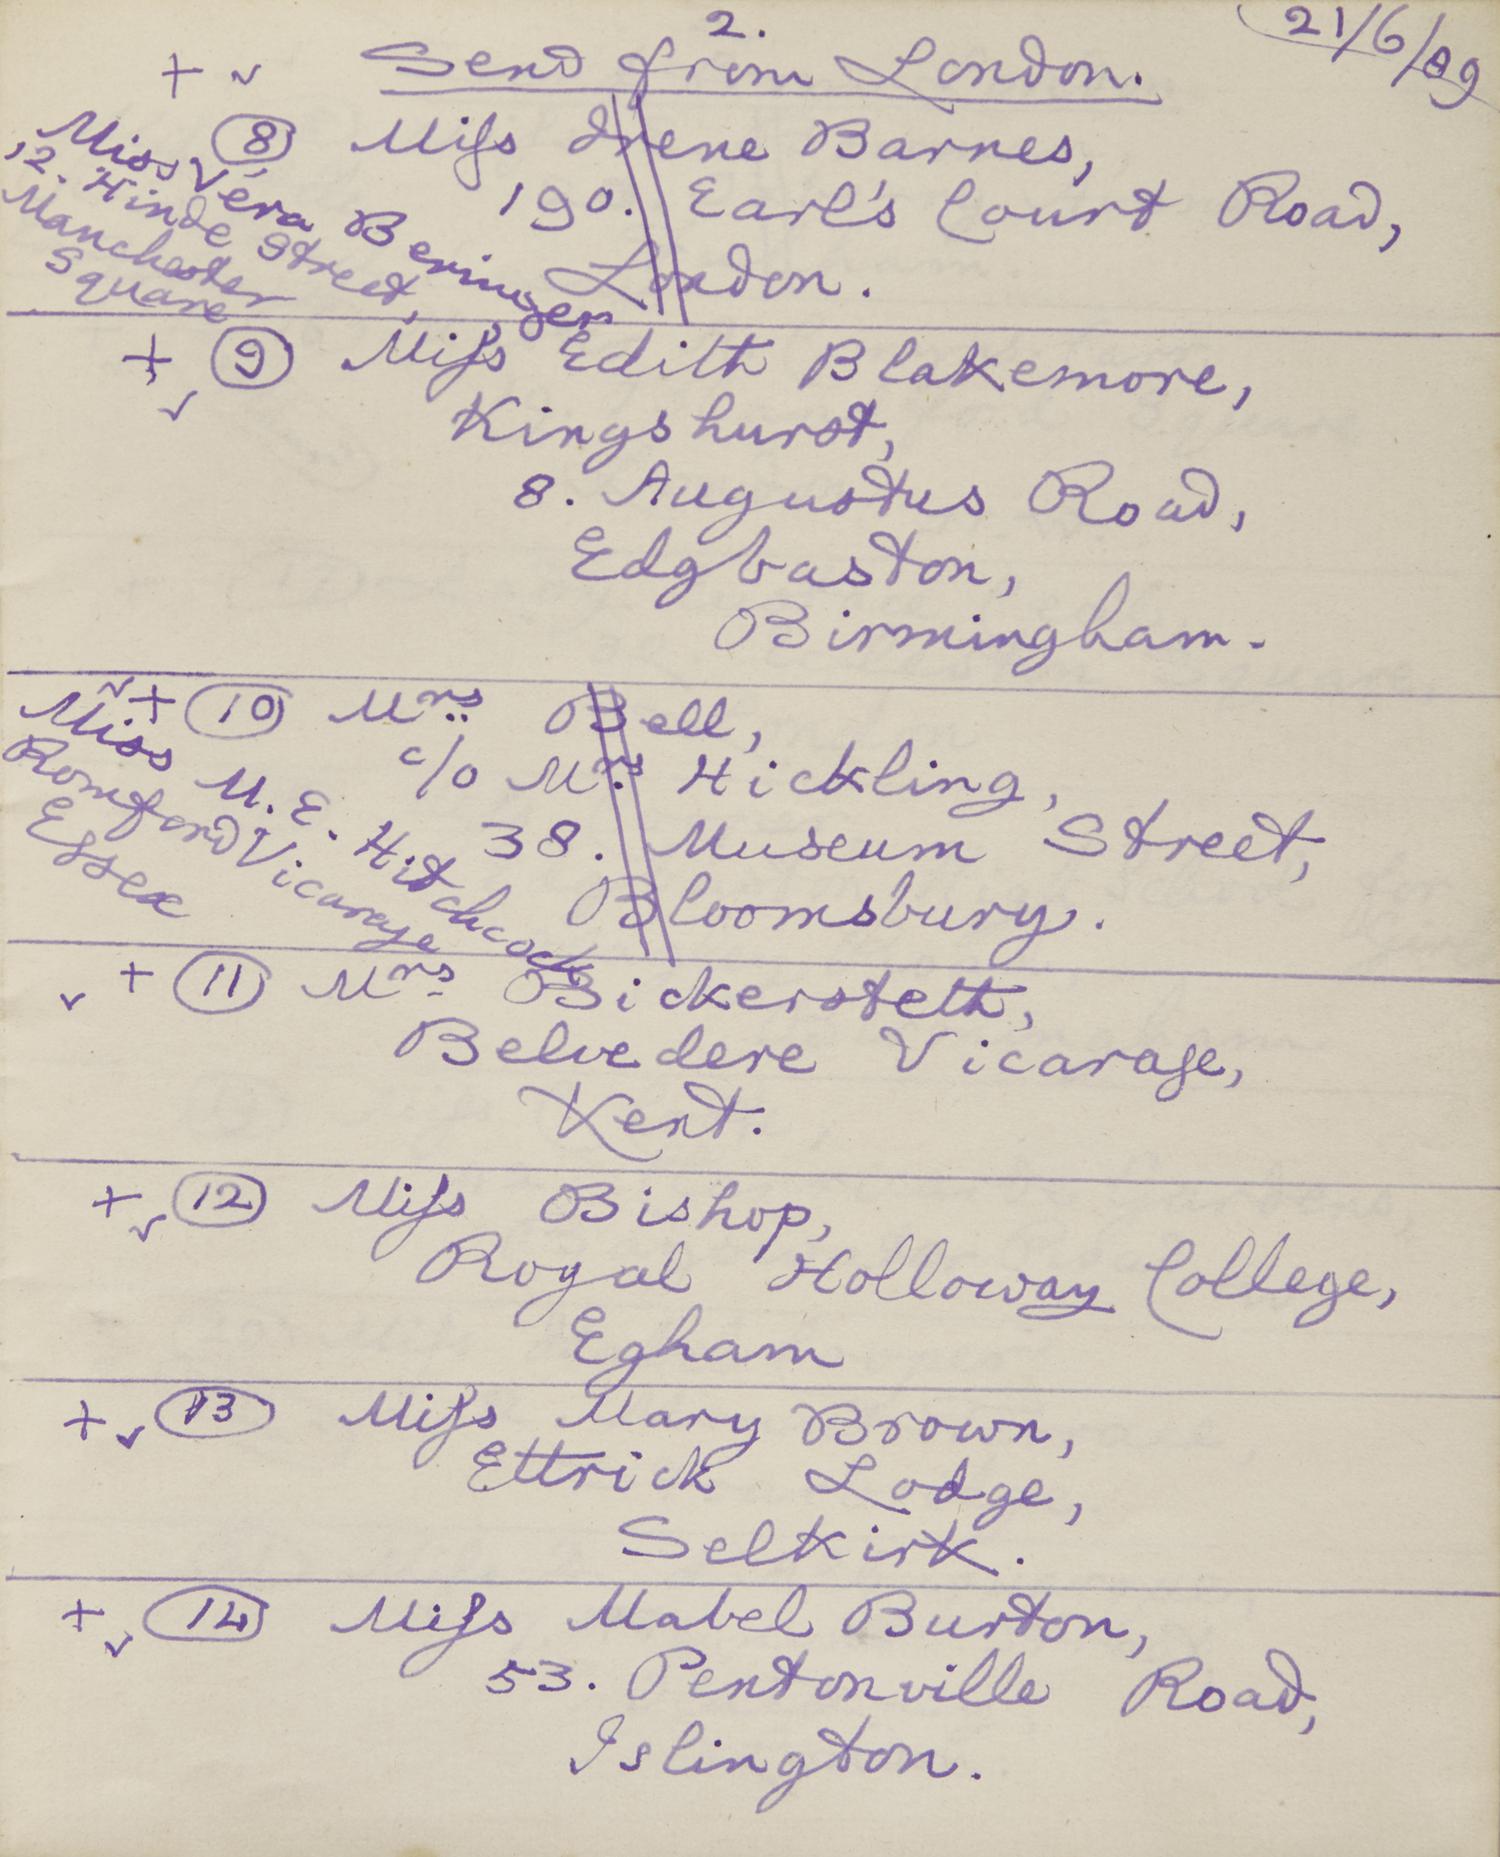 2.
21/6/89
Send from London.
+ ✓
(8) Miss Irene Barnes,
190. Earl's Court Road,
London.
Miss Véra Beringer
12. Hinde Street,
Manchester
Square
+ ✓ (9) Miss Edith Blakemore,
Kingshurst,
8. Augustus Road,
Edgbaston,
Birmingham.
✓ + (10) Mrs Bell,
c/o Mrs Hickling,
38. Museum Street,
Bloomsbury.
Miss M. E. Hitchcock
Romford Vicarage
Essex
✓ + (11) Mrs Bickersteth,
Belvedere Vicarage,
Kent.
+ ✓ (12) Miss Bishop,
Royal Holloway College,
Egham
+ ✓ (13) Miss Mary Brown,
Ettrick Lodge,
Selkirk.
+ ✓ (14) Miss Mabel Burton,
53. Pentonville Road,
Islington.